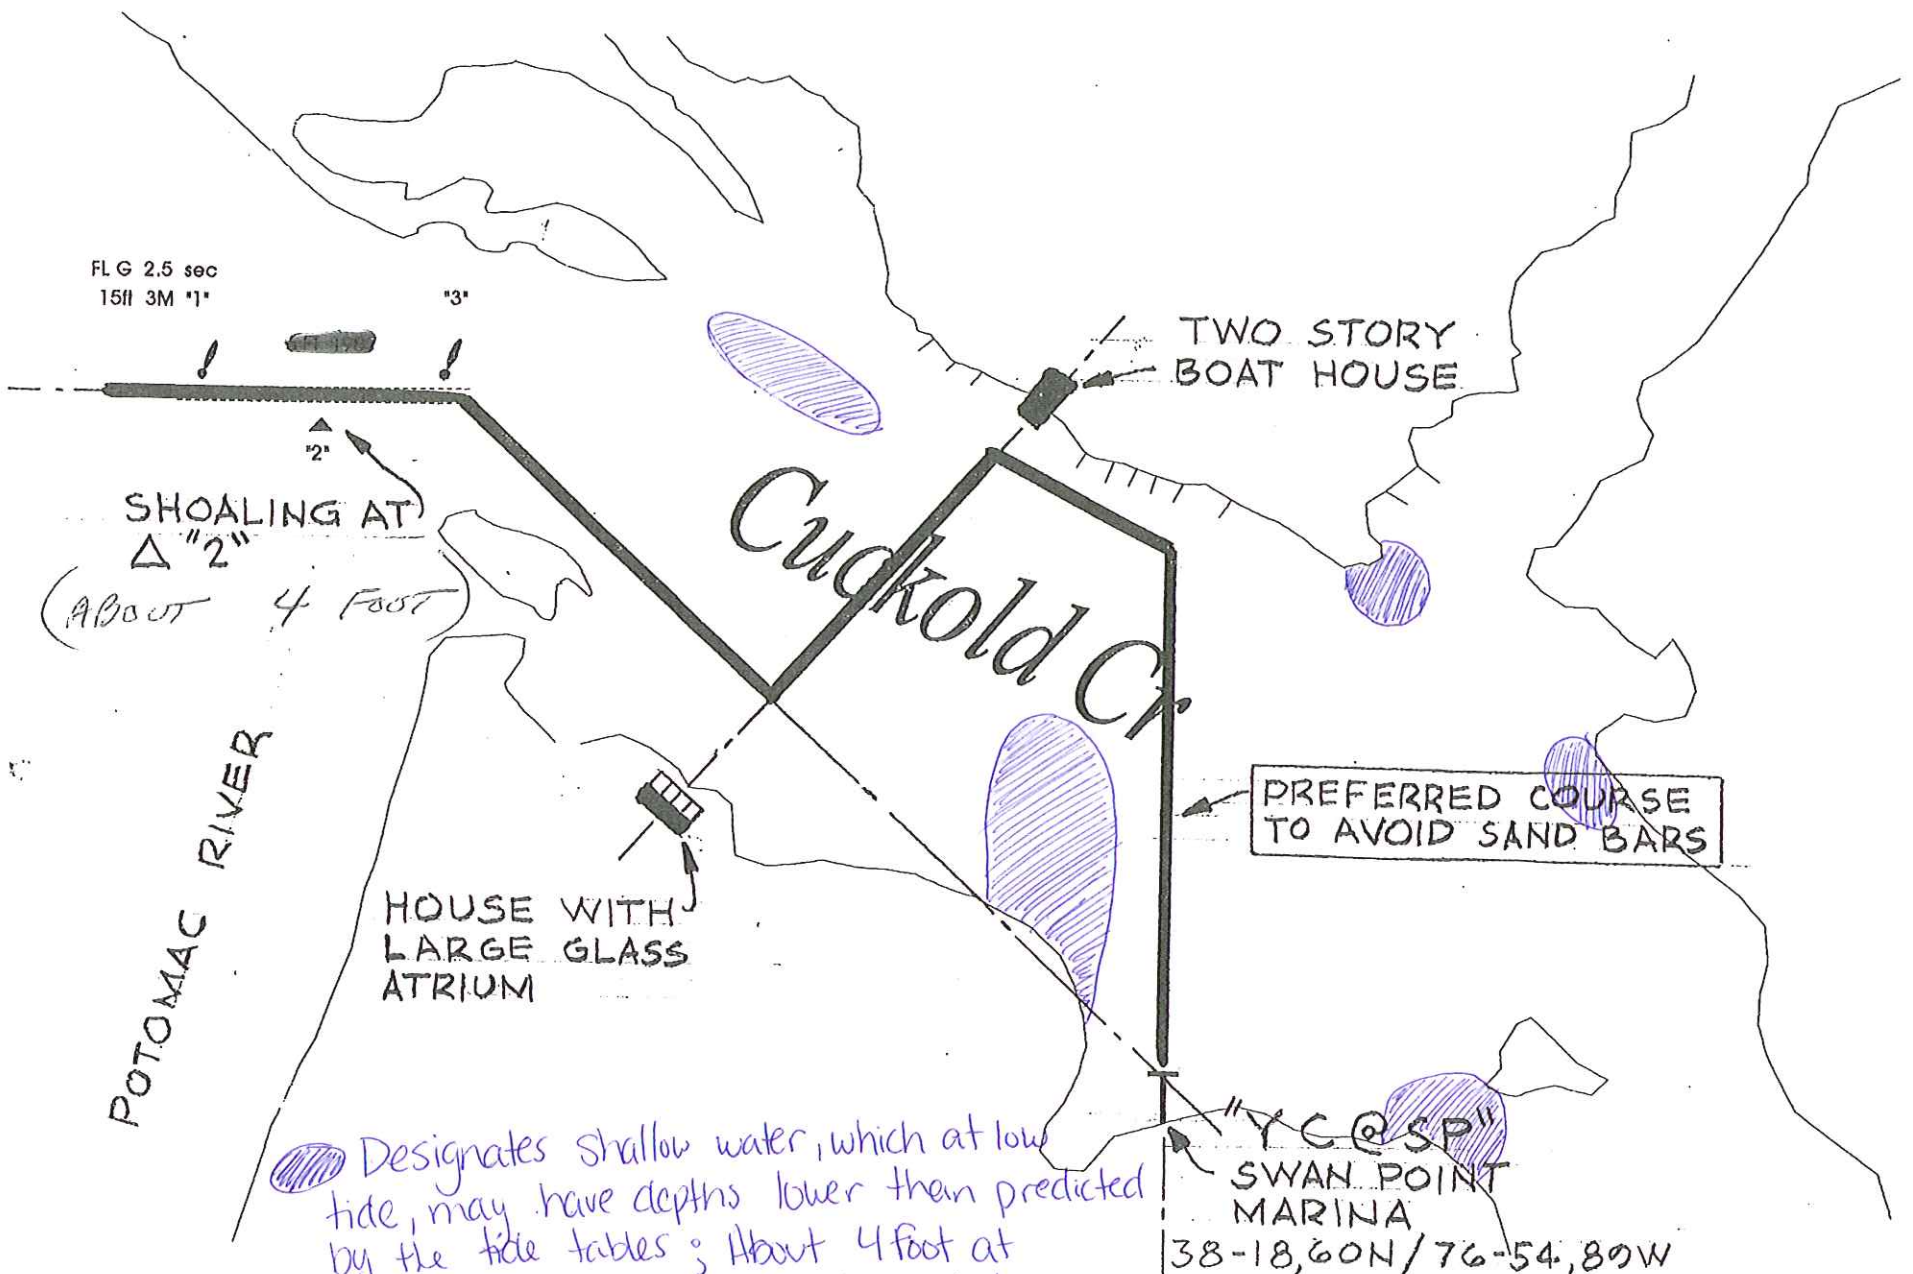 FL G 2.5 sec
15ft 3M "1"
"3"
"2"
SHOALING AT
Δ "2"
(ABOUT 4 FOOT)
TWO STORY
BOAT HOUSE
Cuckold Cr
PREFERRED COURSE
TO AVOID SAND BARS
HOUSE WITH
LARGE GLASS
ATRIUM
POTOMAC RIVER
"YC@SP"
SWAN POINT
MARINA
38-18,60N/76-54,89W
Designates shallow water, which at low
tide, may have depths lower than predicted
by the tide tables; About 4 foot at